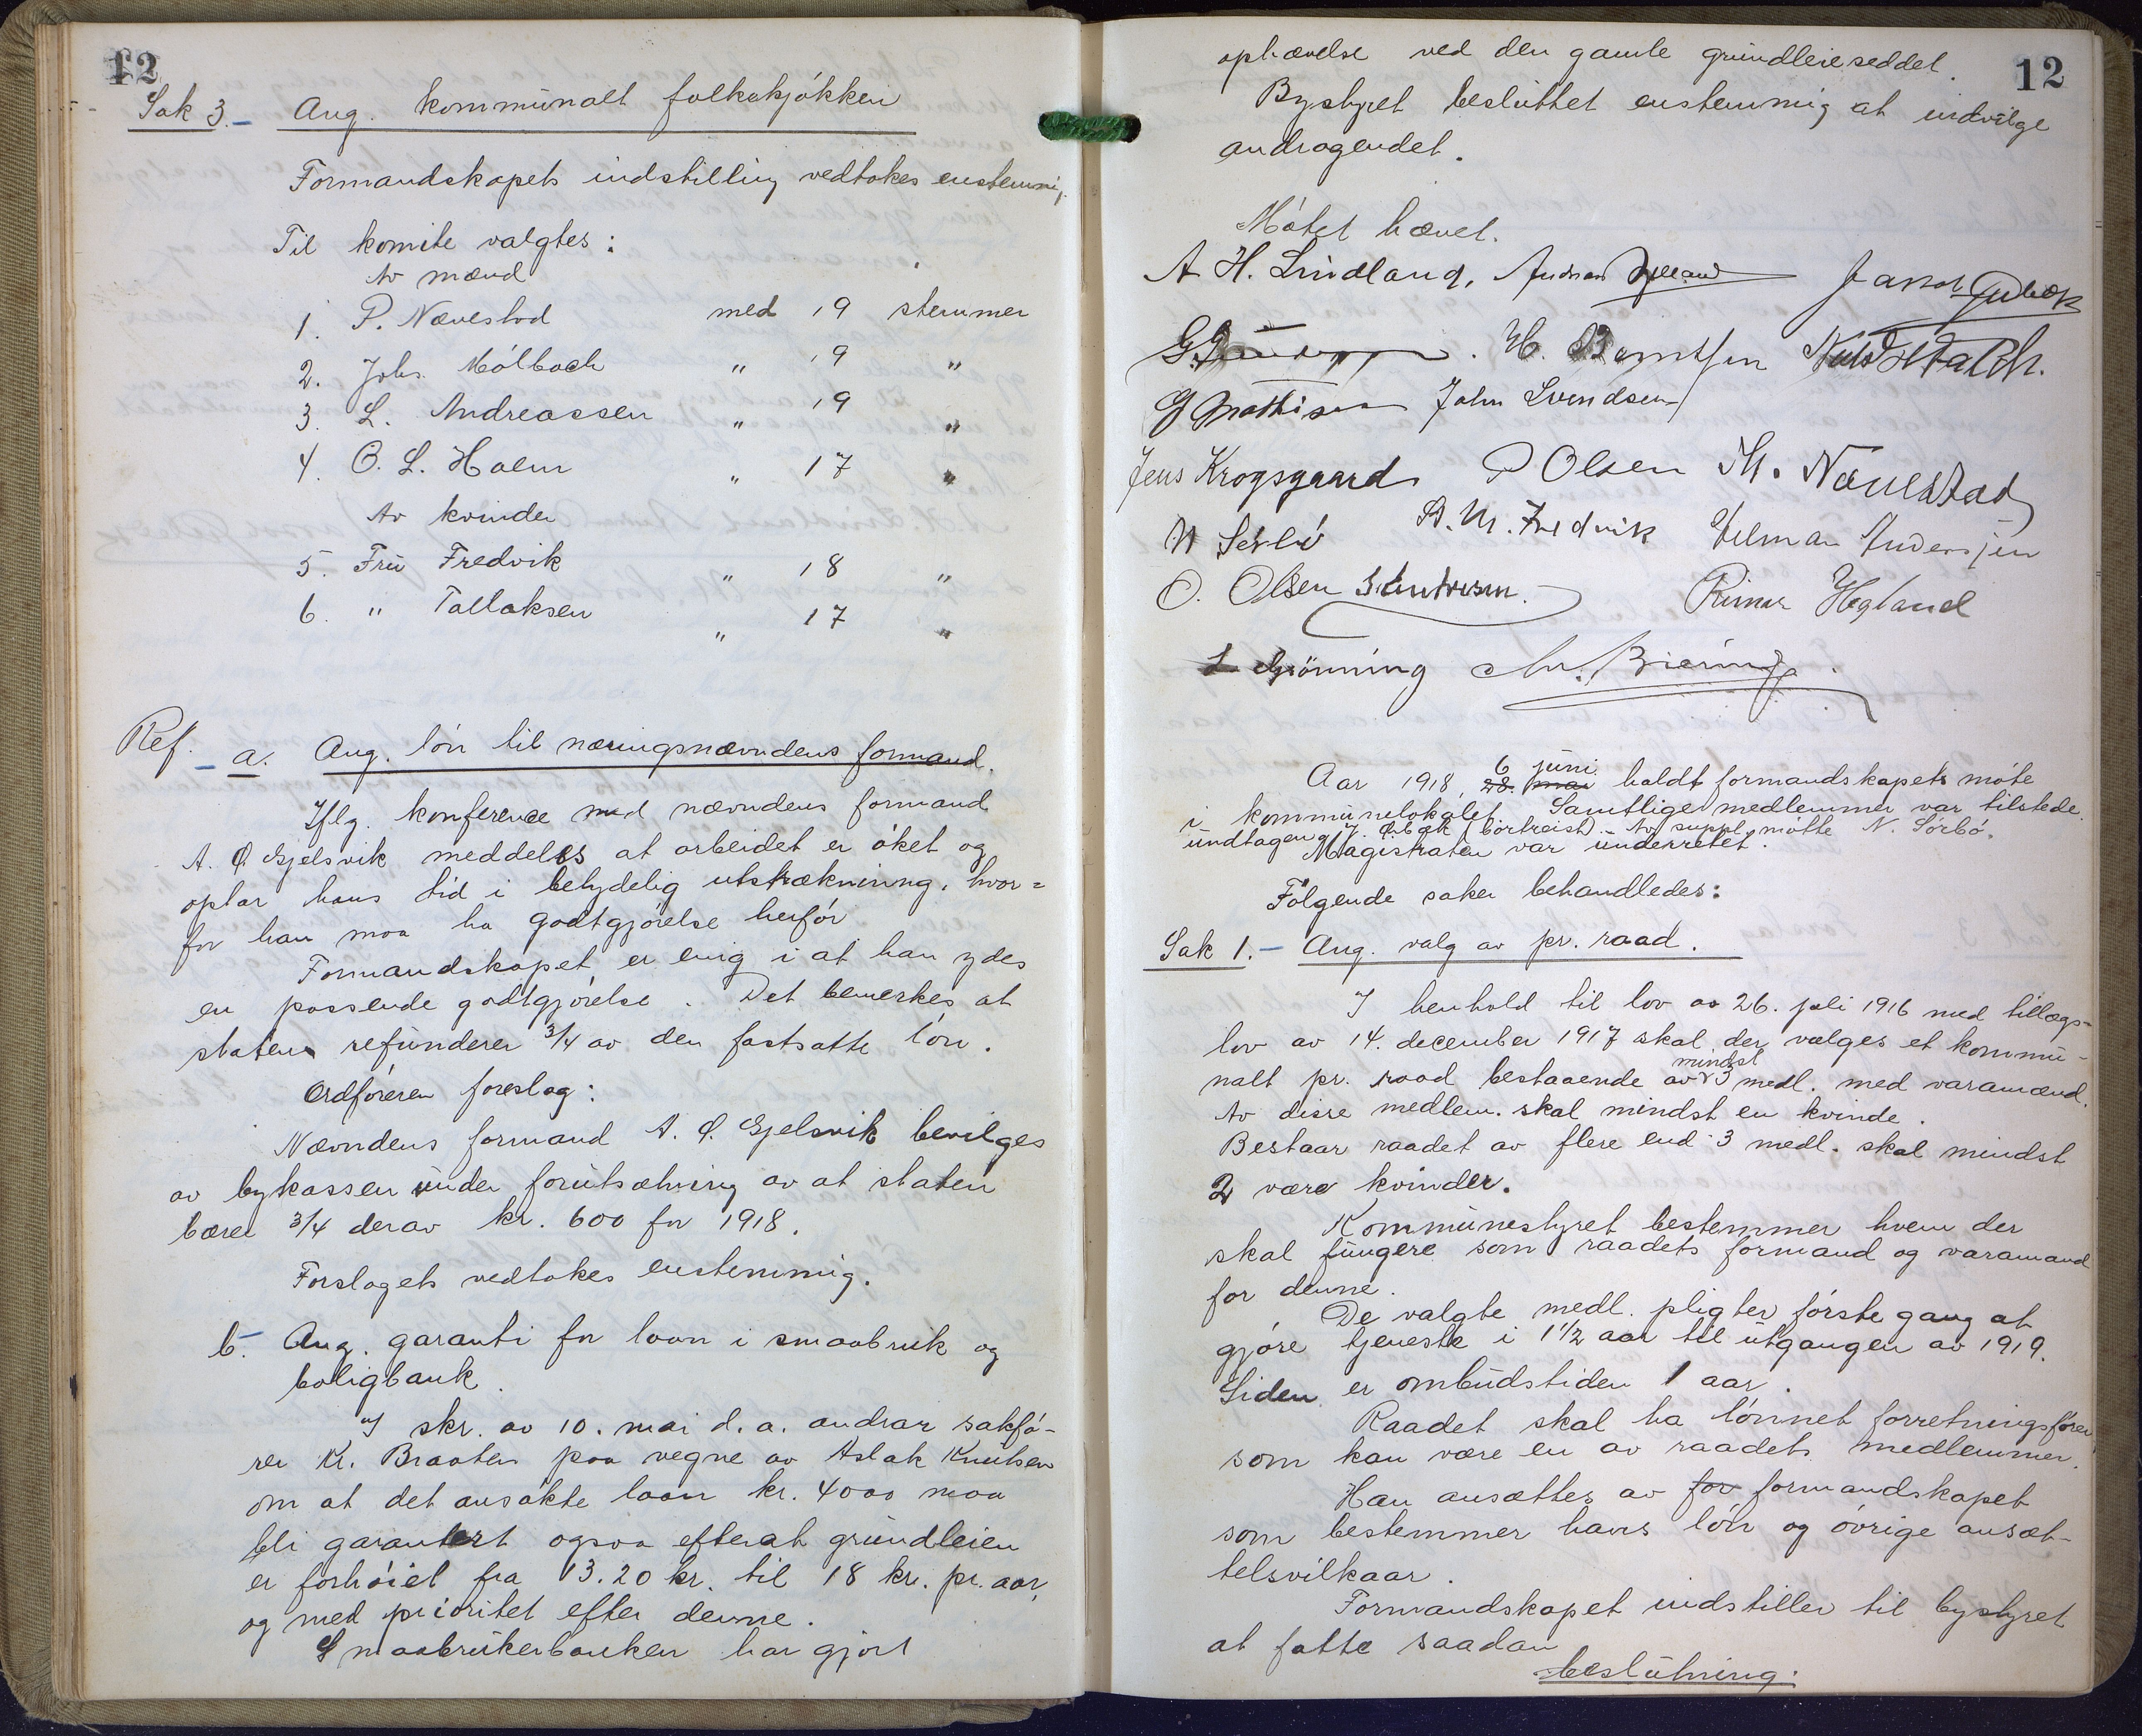 12
Sak 3.- Ang. kommunalt folkekjøkken
Formandskapets indstilling vedtokes enstemmig.
Til komite valgtes:
Av mænd
1. P. Nævestad med 19 stemmer
2. Johs. Mølbach " 19 "
3. L. Andreassen " 19 "
4. O. L. Holm " 17 "
Av kvinder
5. Fru Fredvik " 18 "
6. " Tallaksen " 17 "
Ref. - a. Ang. løn til næringsnævndens formand.
Iflg. konference med nævndens formand
A. Ø. Gjelsvik meddeles at arbeidet er øket og
optar hans tid i betydelig utstrækning, hvor=
for han maa ha godtgjørelse herfor
Formandskapet er enig i at han ydes
en passende godtgjørelse. Det bemerkes at
staten refunderer 3/4 av den fastsatte løn.
Ordføreren foreslog:
Nævndens formand A. Ø. Gjelsvik bevilges
av bykassen under forutsætning av at staten
bærer 3/4 derav kr. 600 for 1918.
Forslagets vedtokes enstemmig.
b.- Ang. garanti for laan i smaabruk og
boligbank.
I skr. av 10. mai d. a. andrar sakfø-
rer Kr. Braaten paa vegne av Aslak Knutsen
om at det ansøkte laan kr. 4000 maa
bli garantert ogsaa efterat grundleien
er forhøiet fra 13.20 kr. til 18 kr. pr. aar,
og med prioritet efter denne.
Smaabrukerbanken har gjort
12
ophævelse ved den gamle grundleieseddel.
Bystyret besluttet enstemmig at indvilge
andragendet.
Møtet hævet.
A H. Lindland,
H. Berntsen
G Mathisen John Svendsen
Jens Krogsgaard P Olsen Th. Nævestad
N Sørbø A. M. Fredvik Hilmar Andersen
O. Olsen S. Andresen. Reimer Hegland
L Grönning Chr. Biering.
Aar 1918, 28. mai 6 juni holdt formandskapets møte
i kommunelokalet. Samtlige medlemmer var tilstede.
undtagen J. Ørbæk (bortreist). - Av suppl. møtte N. Sørbø.
Magistraten var underrettet.
Følgende saker behandledes:
Sak 1.- Ang. valg av pr. raad.
I henhold til lov av 26. juli 1916 med tillægs-
lov av 14. december 1917 skal der vælges et kommu-
nalt pr. raad bestaaende av mindst 3 medl. med varamænd.
Av disse medlem. skal mindst en kvinde.
Bestaar raadet av flere end 3 medl. skal mindst
2 være kvinder.
Kommunestyret bestemmer hvem der
skal fungere som raadets formand og varamand
for denne.
De valgte medl. pligter første gang at
gjøre tjeneste i 1 1/2 aar til utgangen av 1919.
Siden er ombudstiden 1 aar.
Raadet skal ha lønnet forretningsfører
som kan være en av raadets medlemmer.
Han ansættes av for formandskapet
som bestemmer hans løn og øvrige ansæt-
telsvilkaar.
Formandskapet indstiller til bystyret
at fatte saadan
beslutning: